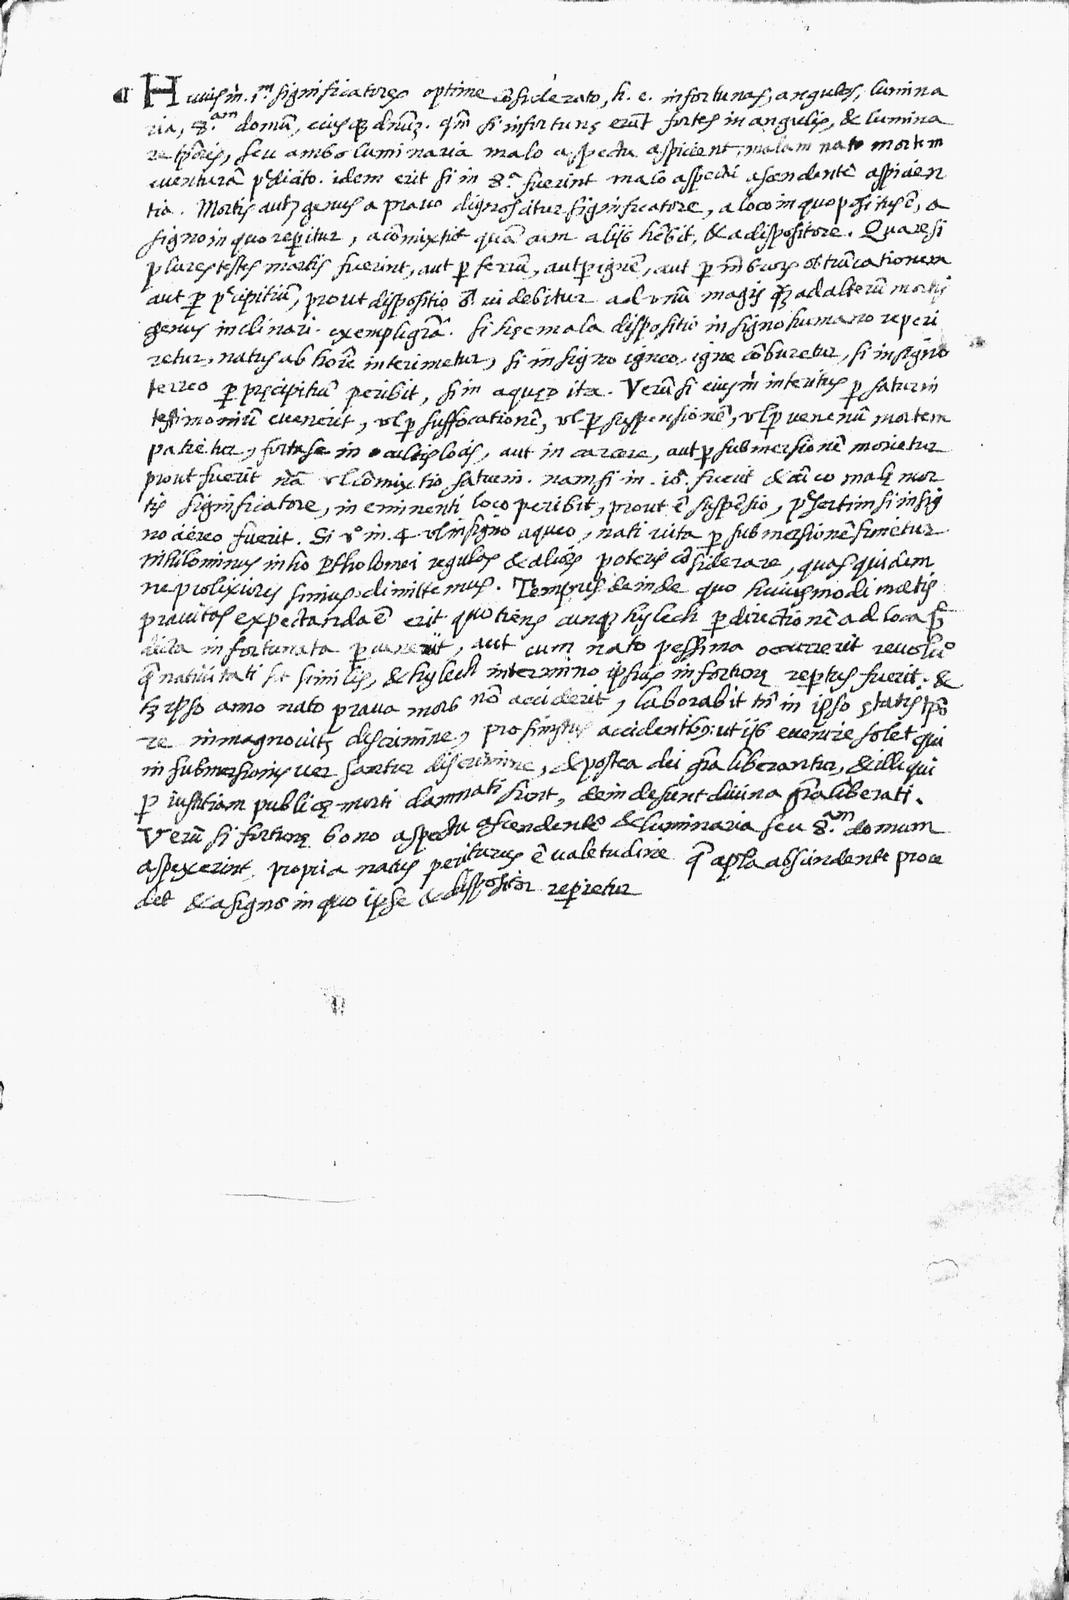 Huiusm̃. rm significatores optime cõsiderato, h. e. infortunas, angulos, lumina
ria, 8.am domũ, eiusq̃ dñuȝ. qm̃ si infortunę erũt fortes in angulis, & lumina
re tp̃oris, seu ambo luminaria malo aspectu aspicient, malam nato mortem
euenturã p̃dicito. idem erit si in 8.a fuerint malo aspectu ascendentẽ aspicien
tia. Mortis autȝ genus a prauo dignoscitur significatore, a loco in quo positus ẽ, a
signo in quo reperitur, a cõmixtiõe quã cum alijs hẽbit, & a dispositore. Quare si
plures testes mortis fuerint, aut ꝑ ferrũ, aut ꝑ ignẽ, aut ꝑ mẽbrorũ obtrũcationem
aut ꝑ p̃cipitiũ, prout dispositio uidebitur ad unũ magis q̃ȝ ad alterũ mortis
genus inclinari. exempli grã. si hęc mala dispositio in signo humano reperi
retur, natus ab hoĩe interimetur, si in signo igneo, igne cõburetur, si in signo
terreo ꝑ pręcipitiũ peribit, si in aqueo ita. Verũ si eiusm̃ interitus ꝑ saturni
testimoniũ euenerit, ul ꝑ suffocationẽ, ul ꝑ suspensionẽ, ul ꝑ uenenũ mortem
patietur, fortasse in occultis locis, aut in carcere, aut ꝑ submersionẽ morietur
prout fuerit nã ul cõmixtio saturni. nam si in .io. fuerit & aĩco malȝ mor
tis significatore, in eminenti loco peribit, prout ẽ suspẽsio, p̃sertim si in sig
no aëreo fuerit. Si uo in .4 ul in signo aqueo, nati uita ꝑ submersionẽ finietur
nihilominus in hoc ptholomei regulas & aliorũ poteris cõsiderare, quas quidem
ne prolixiores simus dimittemus. Temporis deinde quo huiusmodi mortis
prauitas expectanda ẽ erit quotiens cunq̃ hylech ꝑ directionẽ ad loca p̃
dicta infortunata ꝑuenerit, aut cum nato pessima occurrerit reuolutio
q̃ natiuitati sit similis, & hylech in termino ipsius infortunę reptus fuerit. &
si ipso anno nato praua mors nõ acciderit, laborabit tñ in ipso ętatis tpõ
re in magno uitę discrimine, pro similibus accidentibus: ut ijs euenire solet qui
in submersionis uersantur discrimine, & postea dei grã liberantur, & illi qui
ꝑ iustitiam publicę morti damnati sunt, deinde sunt diuina grã liberati.
Verũ si fortunę bono aspectu ascendente & luminaria seu 8.am domum
aspexerint, propria natus periturus ẽ ualetudine q̃ ab ascendente proce
det & a signo in quo ipse & dispositor reperetur